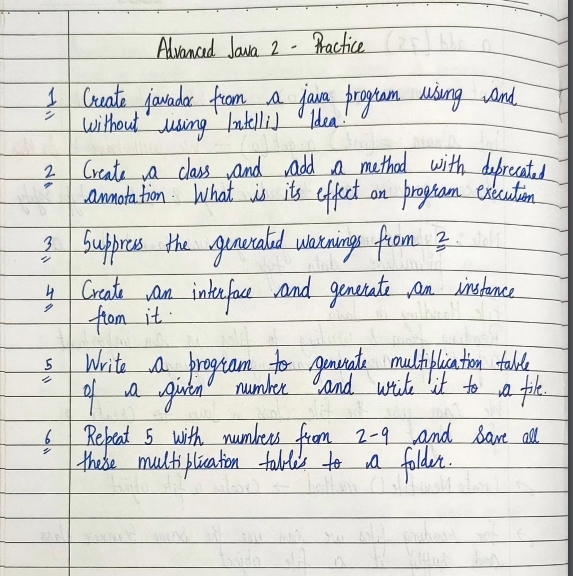 Advanced Java 2 - Practice
1 Create javadoc from a java program using and
without using Intellij Idea.
2 Create a class and add a method with deprecated
annotation. What is its effect on program execution
3 Suppress the generated warnings from 2
4 Create an interface and generate an instance
from it.
5 Write a program to generate multiplication table
of a given number and write it to a file.
6 Repeat 5 with numbers from 2-9 and save all
these multiplication tables to a folder.